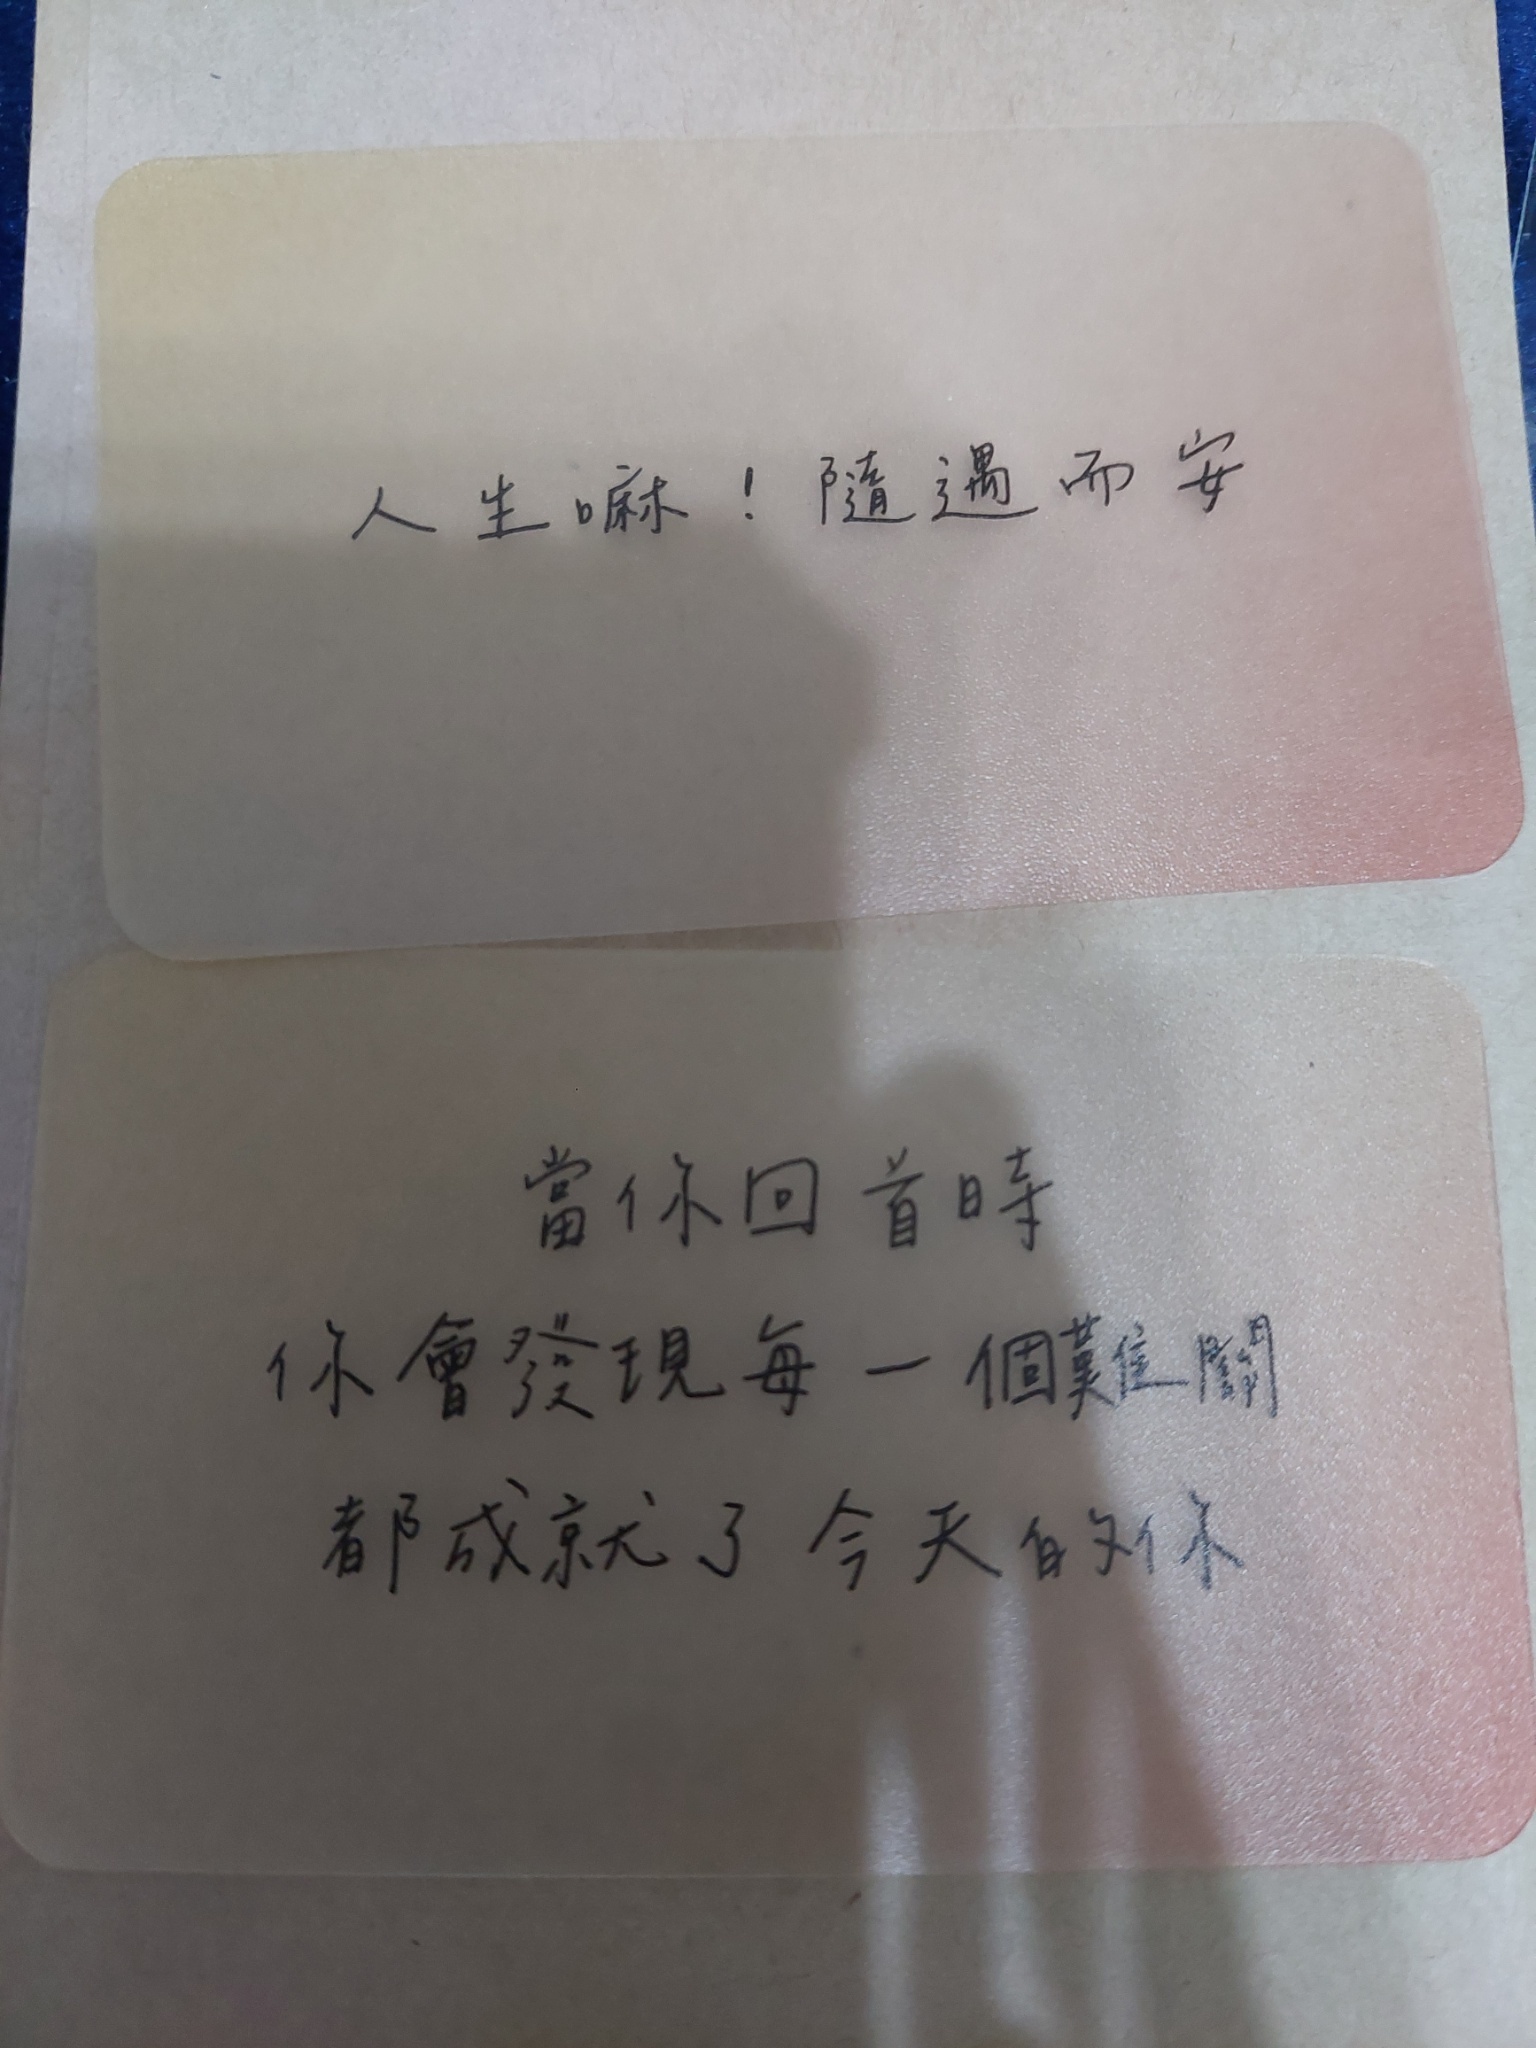 人生嘛！隨遇而安
當你回首時
你會發現每一個難關
都成就了今天的你